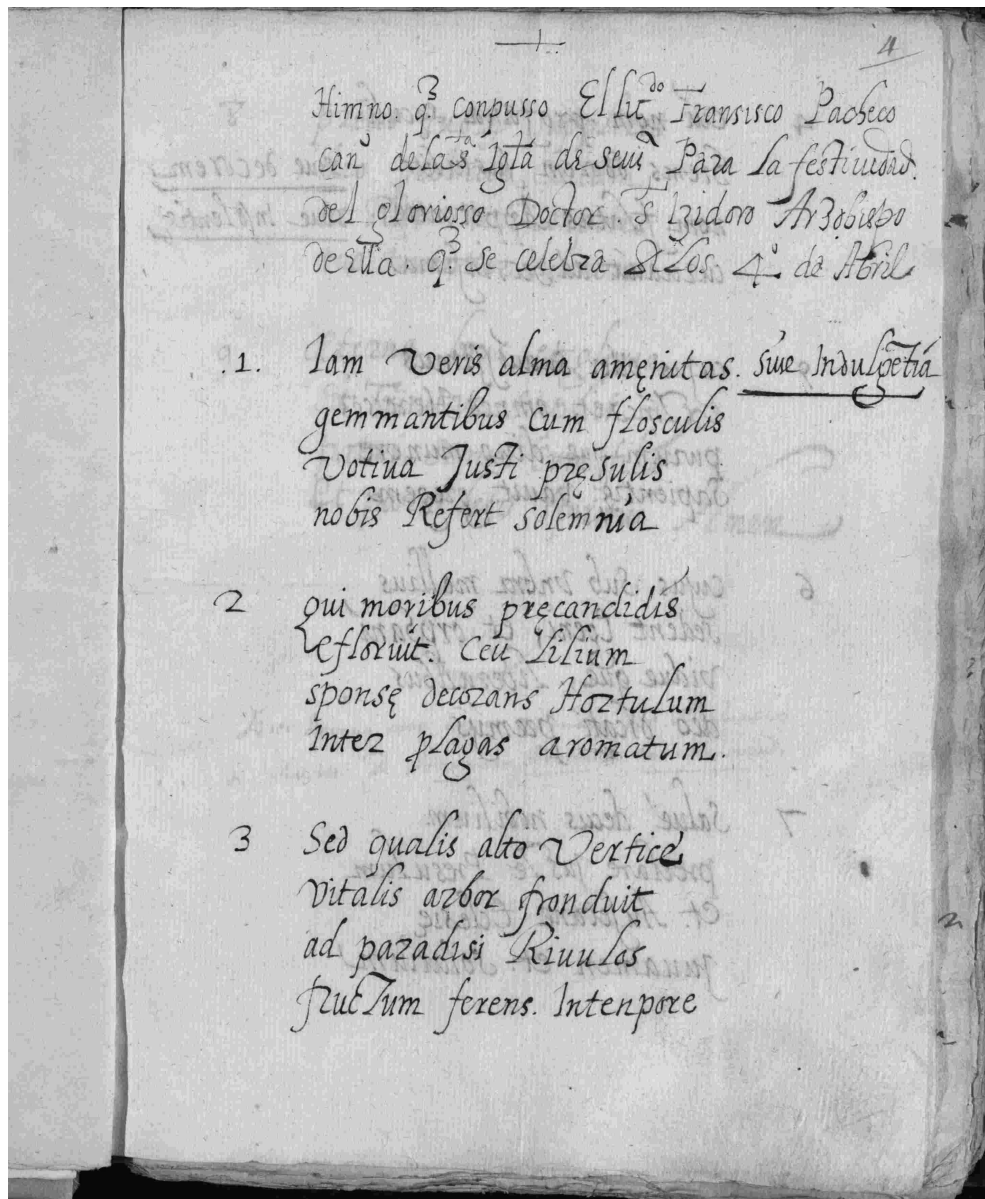 4
Himno. q̃. conpusso El licdo Fransisco Pacheco
cano de la sta Iglã de seuiª Para la festiuidad.
del gloriosso Doctor s̃ Izidoro Arzobispo
de Ella q̃. se celebra A los 4º de Abril
.1. Iam Veris alma amęnitas. siue Indulgẽtia
gemmantibus cum flosculis
Votiua Justi pręsulis
nobis Refert solemnia
2 qui moribus pręcandidis
efloruit. Ceu Lilium
sponsę decorans Hortulum
Inter plagas aromatum.
3 Sed qualis alto Vertice
Vitalis arbor fronduit
ad paradisi Riuulos
fructum ferens. Intenpore